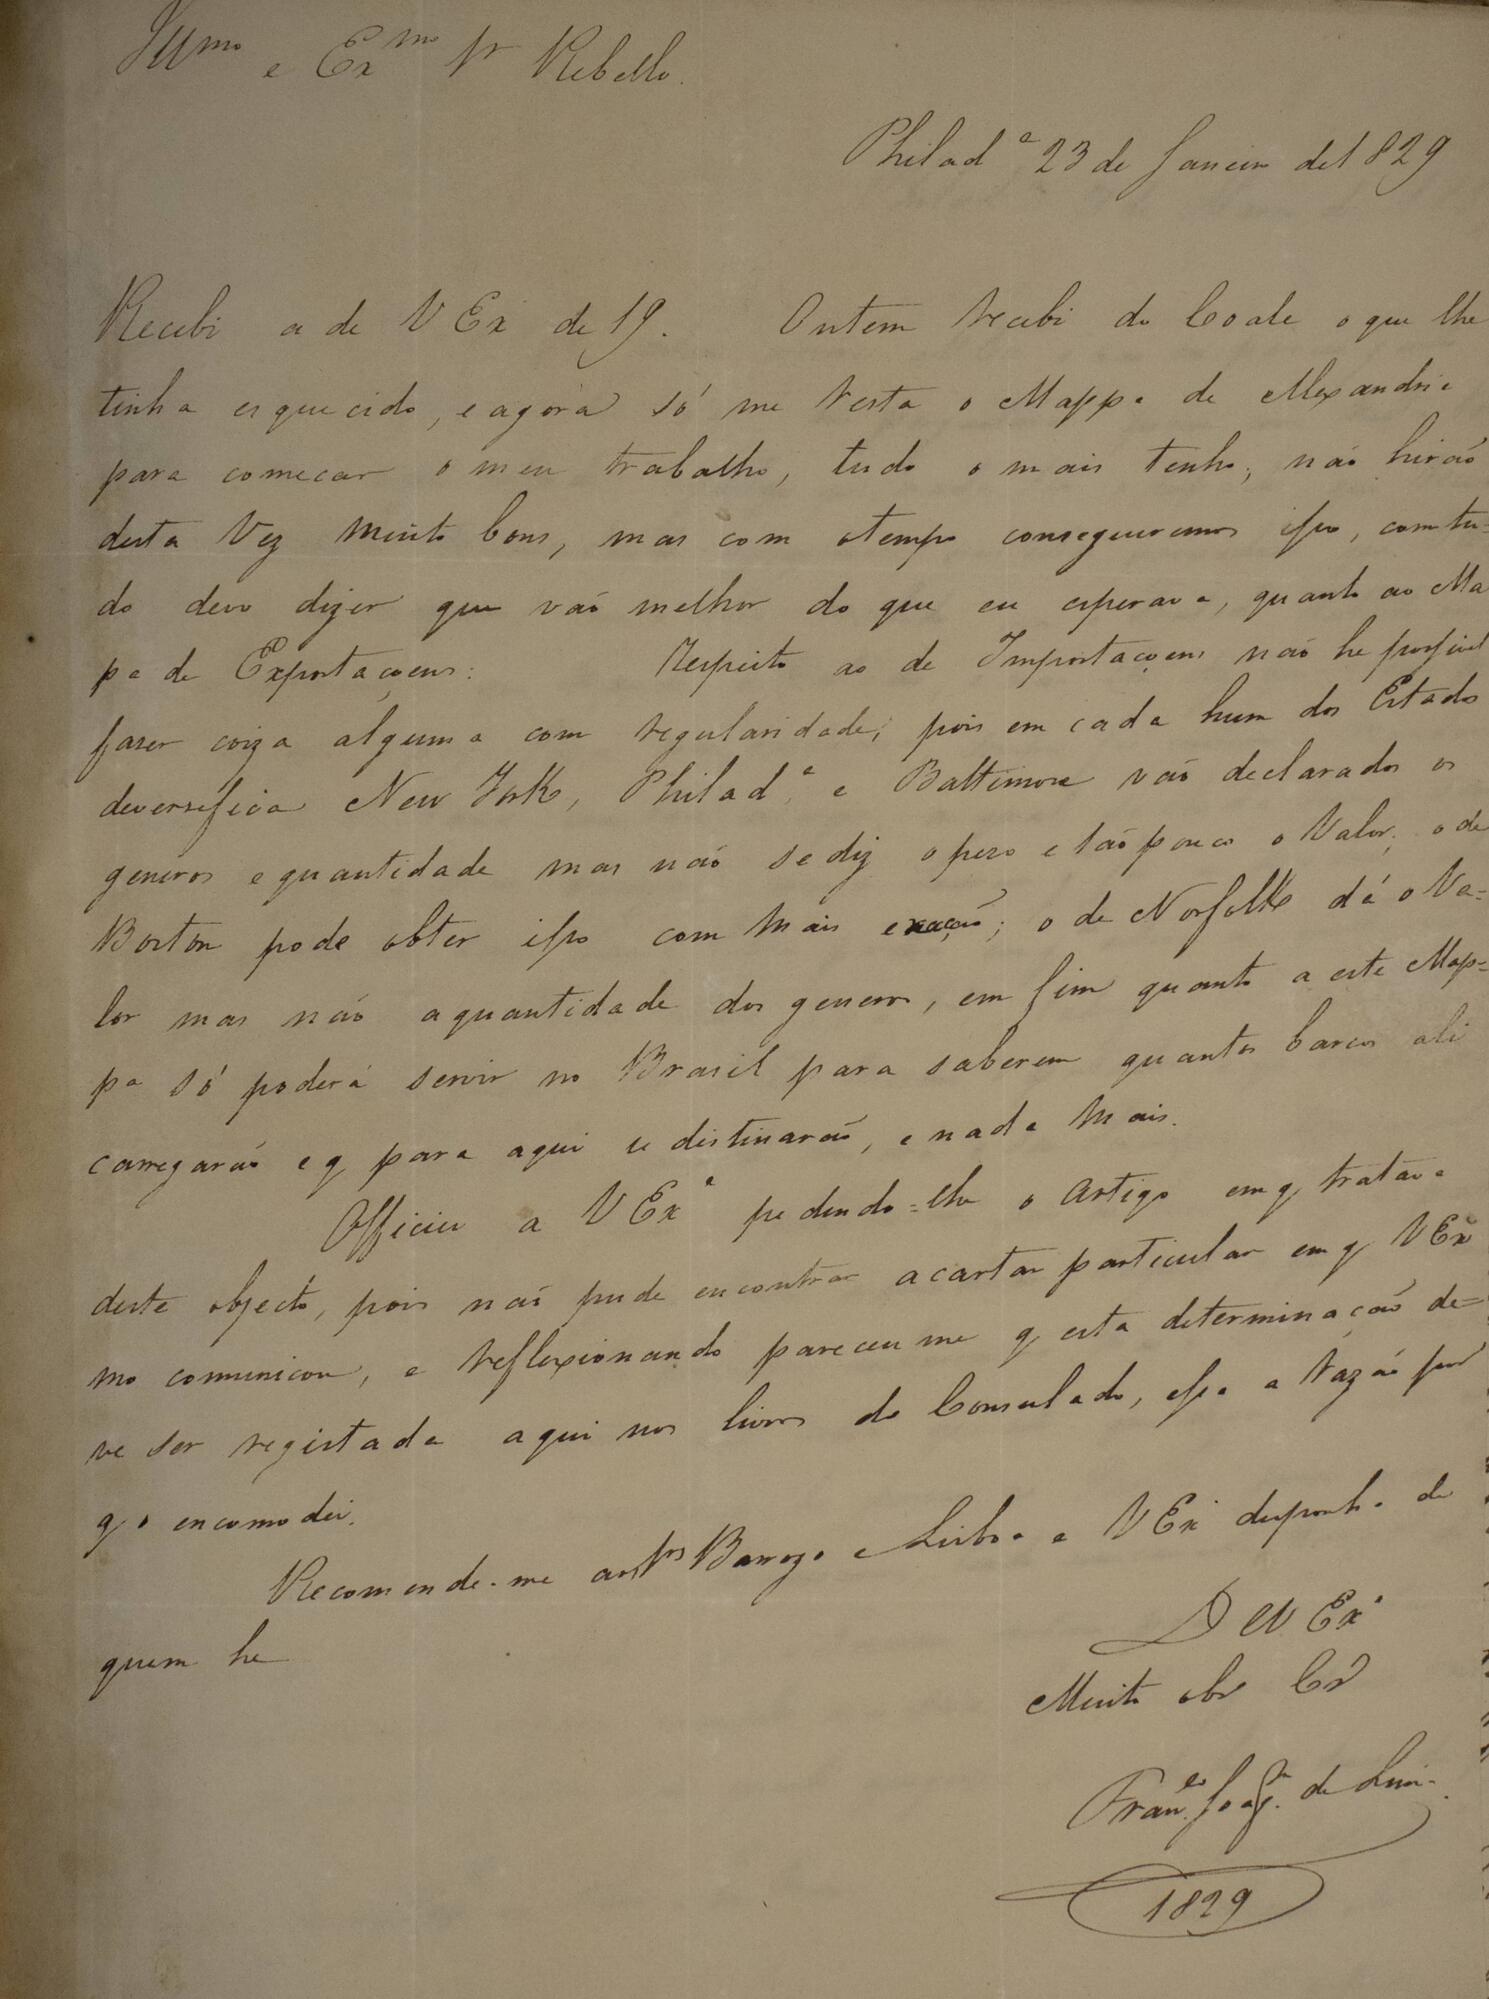 Illmo e Exmo Sr Rebello.
Philada 23 de Janeiro de 1829
Recebi a de V Exa de 19. Ontem recebi do Coale o que lhe
tinha esquecido, e agora só me resta o Mappa de Alexandria
para comecar o meu trabalho, tudo o mais tenho; não hirão
desta Vez Muito bons, mas com otempo conseguiremos isso, comtu=
do devo dizer que vão melhor do que eu esperava, quanto ao Ma
pa de Exportaçoens: Respeito ao de Importaçoens não he possivel
faser coiza alguma com regularidade; pois em cada hum dos Estados
deversefica New York, Philada, e Baltimore vão declarados os
generos e quantidade mas não se diz o peso e tão pouco o Valor; o de
Boston pode obter isso com Mais exação; o de Norfolk dá o Va=
lor mas não a quantidade dos generos, em fim quanto a este Map=
pa só poderá servir no Brasil para saberem quantos barcos ali
carregarão e q para aqui se distinarão, e nada Mais.
Officiei a V Exa pedindo=lhe o Artigo em q tratava
deste objecto, pois não pude encontrar a carta particular em q V Exa
mo comunicou, e reflexionando pareceu me q esta determinação de=
ve ser registada aqui nos livros do Consulado, essa a razão por
q o encomodei.
Recomende-me aos Srs Barrozo e Lisboa e V Exa desponha de
quem he
D V Exa
Muito obr Cr
Franco Joaqm de Lima
1829